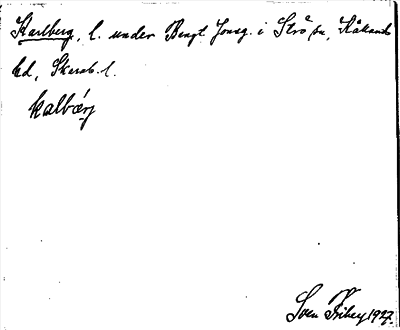 Karlberg, l. under Bengt Jonsg. i Strö sn, Kåkands
hd, Skarab. l.
kalbærj
Sven Friberg 1927.